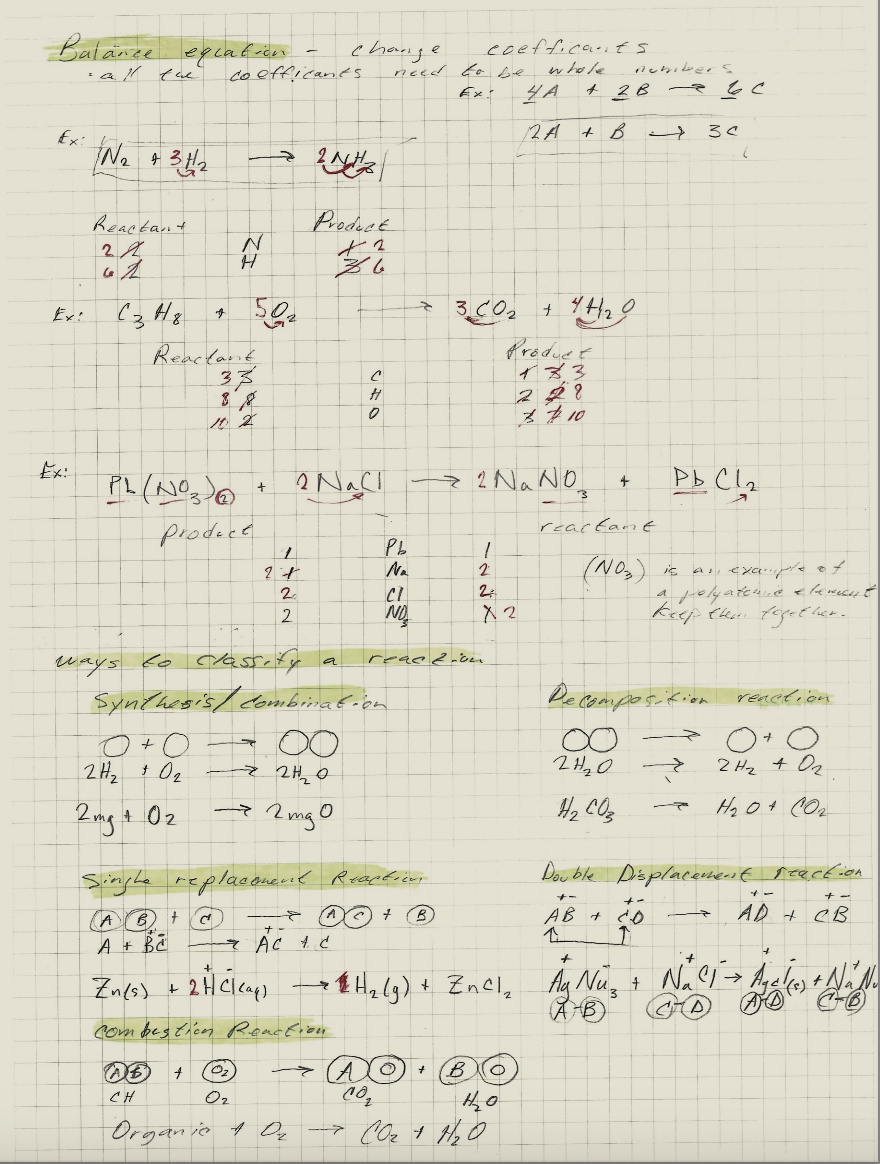 Balance equation - change coefficants
• all the coefficants need to be whole numbers
Ex: 4A + 2B → 6C
2A + B → 3C
Ex:
N₂ + 3H₂ → 2NH₃
Reactant Product
2 2 N 1 2
6 2 H 3 6
Ex: C₃H₈ + 5O₂ → 3CO₂ + 4H₂O
Reactant Product
3 3 C 1 3 3
8 8 H 2 2 8
10 2 O 3 7 10
Ex: Pb(NO₃)₂ + 2NaCl → 2NaNO₃ + PbCl₂
product reactant
1 Pb 1
2 1 Na 2
2 Cl 2
2 NO₃ 1 2
(NO₃) is an example of
a polyatomic element
keep them together.
Ways to classify a reaction
Synthesis/combination
○ + ○ → ○○
2H₂ + O₂ → 2H₂O
2mg + O₂ → 2mgO
Decomposition reaction
○○ → ○ + ○
2H₂O → 2H₂ + O₂
H₂CO₃ → H₂O + CO₂
Single replacement Reaction
A B + C → A C + B
A + B⁺C⁻ → A⁺C⁻ + C
Zn(s) + 2H⁺Cl⁻(aq) → 1H₂(g) + ZnCl₂
Double Displacement reaction
+ - + - + - + -
AB + CD → AD + CB
Ag⁺Nu⁻₃ + Na⁺Cl⁻ → Ag⁺cl(s) + Na⁺Nu
A-B C-D A-D C-B
Combustion Reaction
A B + O₂ → A O + B O
CH O₂ CO₂ H₂O
Organic + O₂ → CO₂ + H₂O